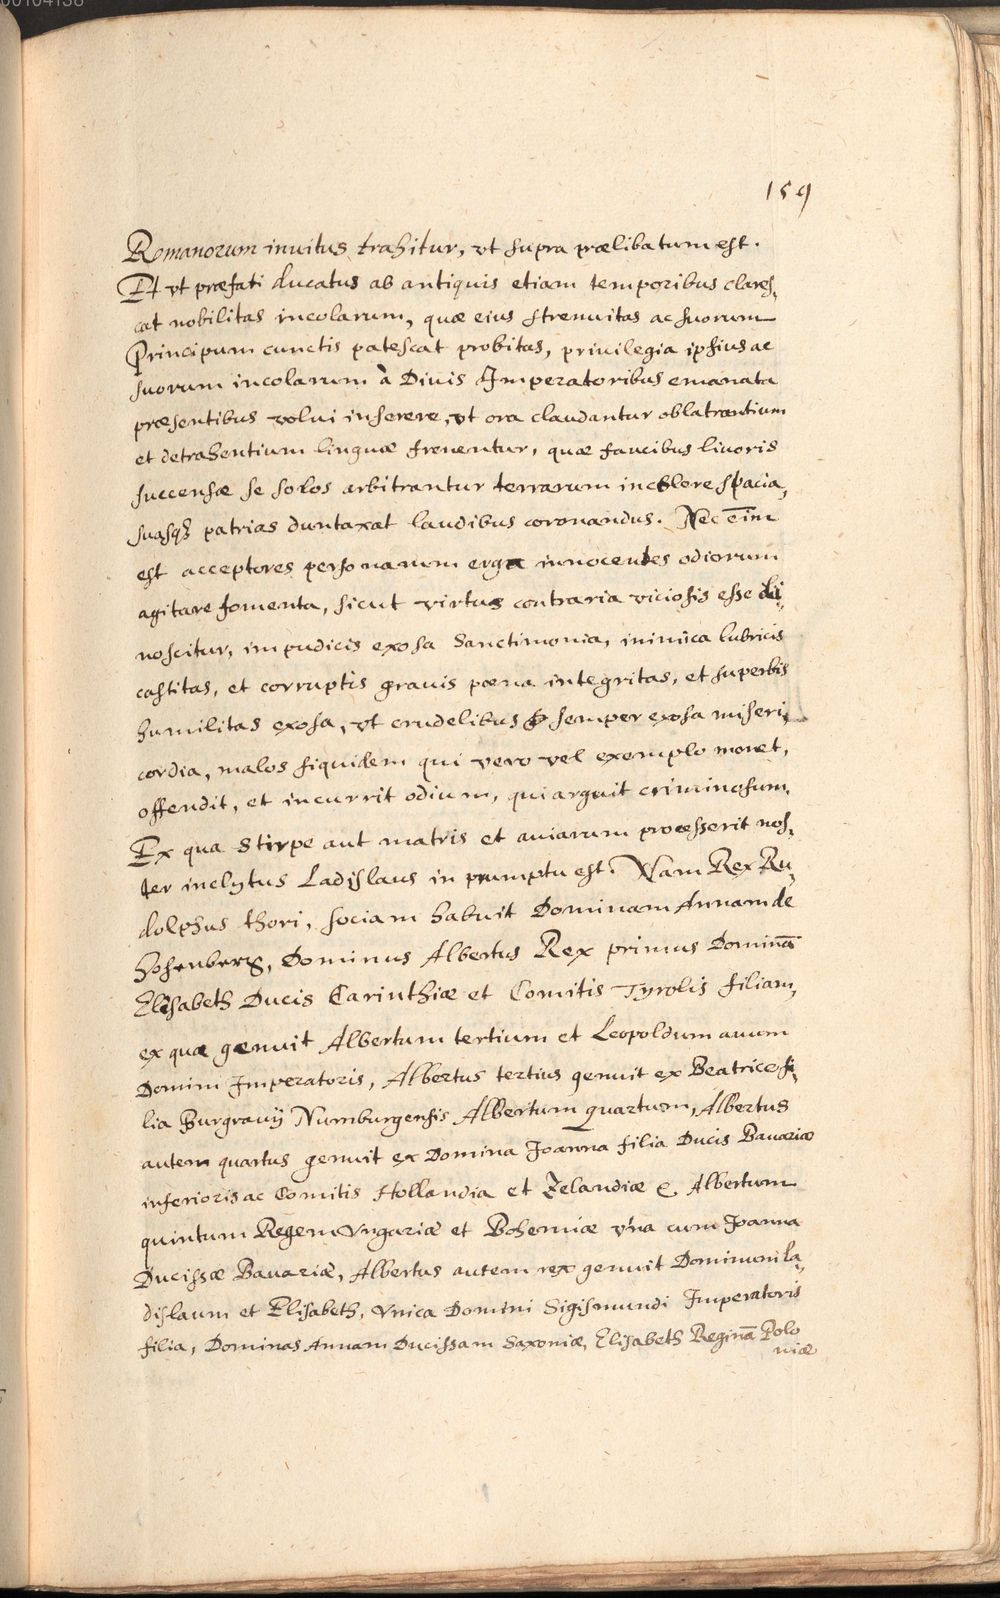 00104138
159
Romanorum inuitus trahitur, vt supra prælibatum est.
Et vt præfati ducatus ab antiquis etiam temporibus clares,
cat nobilitas incolarum, quæ eius strenuitas ac suorum
Principum cunctis patescat probitas, priuilegia ipsius ac
suorum incolarum à Diuis Imperatoribus emanata
præsentibus volui inserere, vt ora claudantur oblatrantium
et detrahentium linguæ frenentur, quæ faucibus liuoris
succensæ se solos arbitrantur terrarum incolere spacia,
suasqꝫ patrias duntaxat laudibus coronandus. Nec eīm
est acceptores personarum erga innocentes odiorum
agitare fomenta, sicut virtus contraria viciosis esse di,
noscitur, impudicis exosa Sanctimonia, inimica lubricis
castitas, et corruptis grauis pœna integritas, et superbis
humilitas exosa, vt crudelibus semper exosa miseri,
cordia, malos siquidem qui vero vel exemplo monet,
offendit, et incurrit odium, qui arguit criminosum.
Ex qua Stirpe aut matris et auiarum processerit nos,
ter inclytus Ladislaus in prumptu est. Nam Rex Ru,
dolphus thori, sociam habuit Dominam Annam de
hohenberg, Dominus Albertus Rex primus Dominā
Elisabeth Ducis Carinthiæ et Comitis Tyrolis filiam,
ex qua genuit Albertum tertium et Leopoldum auum
Domini Imperatoris, Albertus tertius genuit ex Beatrice fi,
lia Burgrauij Nurnburgensis Albertum quartum, Albertus
autem quartus genuit ex Domina Joanna filia Ducis Bauariæ
inferioris ac Comitis Hollandia et Zelandiæ &. Albertum
quintum Regem Vngariæ et Bohemiæ vna cum Joanna
Ducissæ Bauariæ, Albertus autem rex genuit Dominum la,
dislaum et Elisabeth, vnica Domini Sigismundi Imperatoris
filia, Dominas Annam Ducissam Saxoniæ, Elisabeth Reginā Polo
niæ